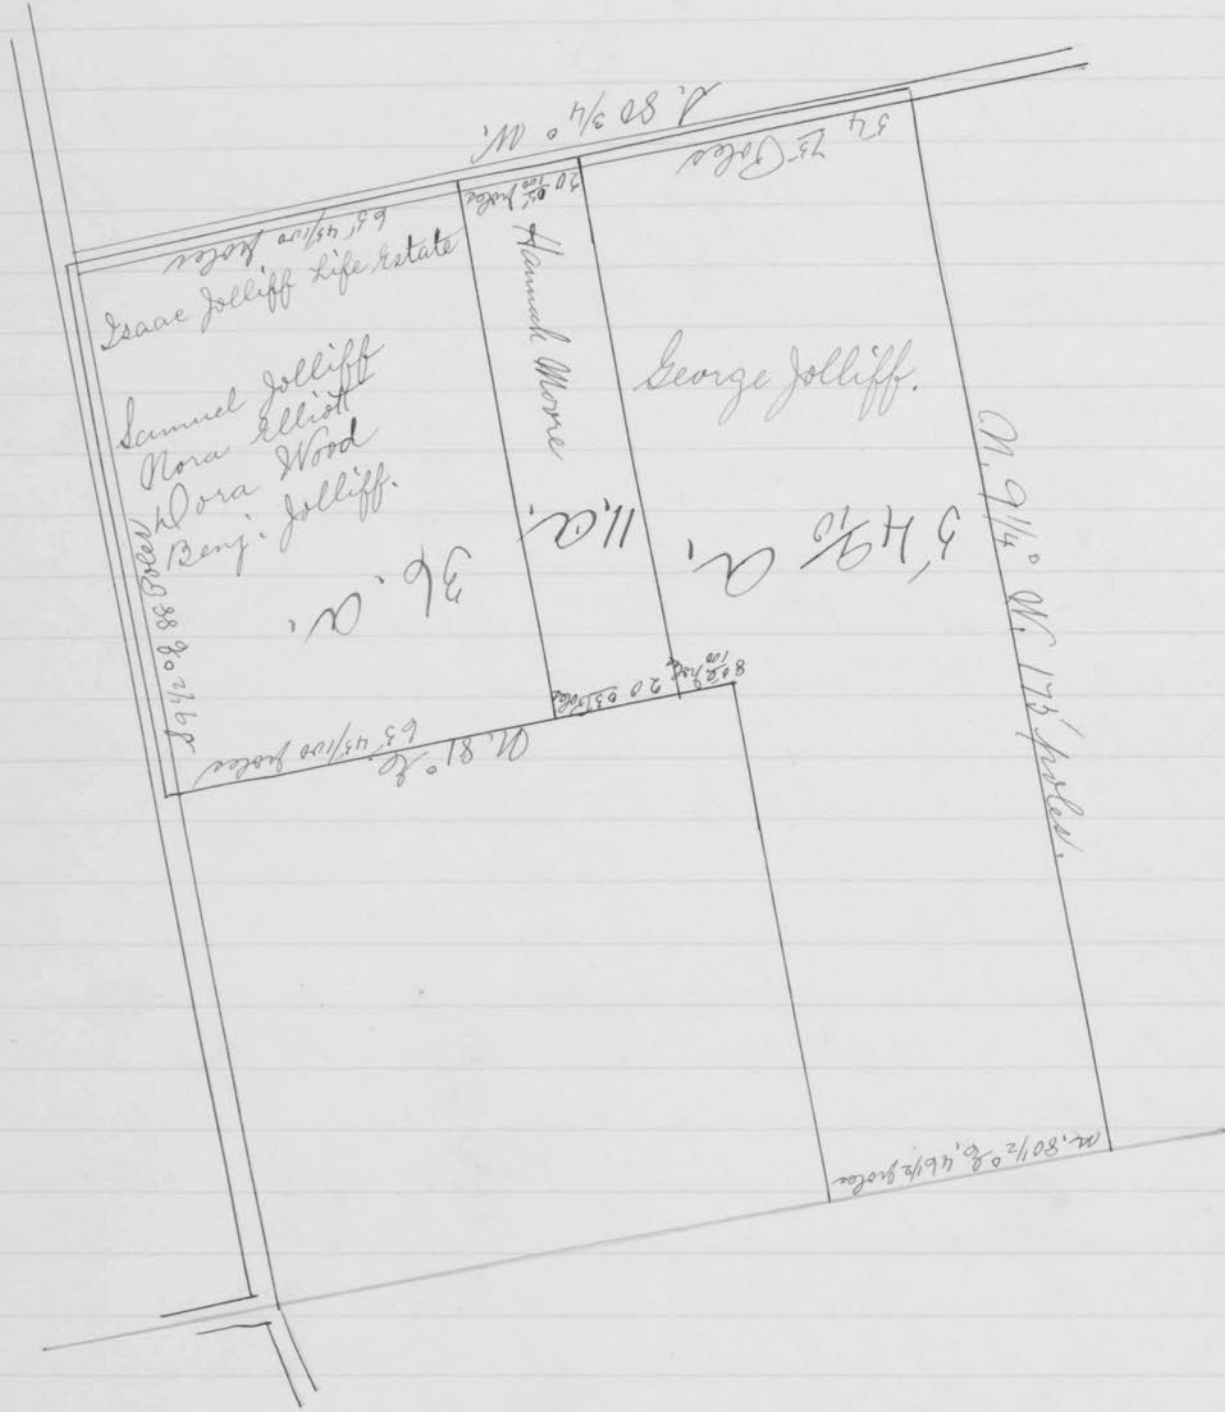 S. 80 3/4° W.
65 45/100 poles
20 05/100 poles
54
75 Poles
Isaac Jolliff Life Estate
Samuel Jolliff
Nora Elliott
Dora Wood
Benj. Jolliff.
36. a.
Hannah Moore
11, a,
George Jolliff.
54 9/10 a,
N. 9 1/4° W. 175 poles.
S 9 1/2° E 88 Poles
N. 81° E
65 45/100 poles
20 05/100 poles
N. 80 1/2° E, 46 1/2 poles